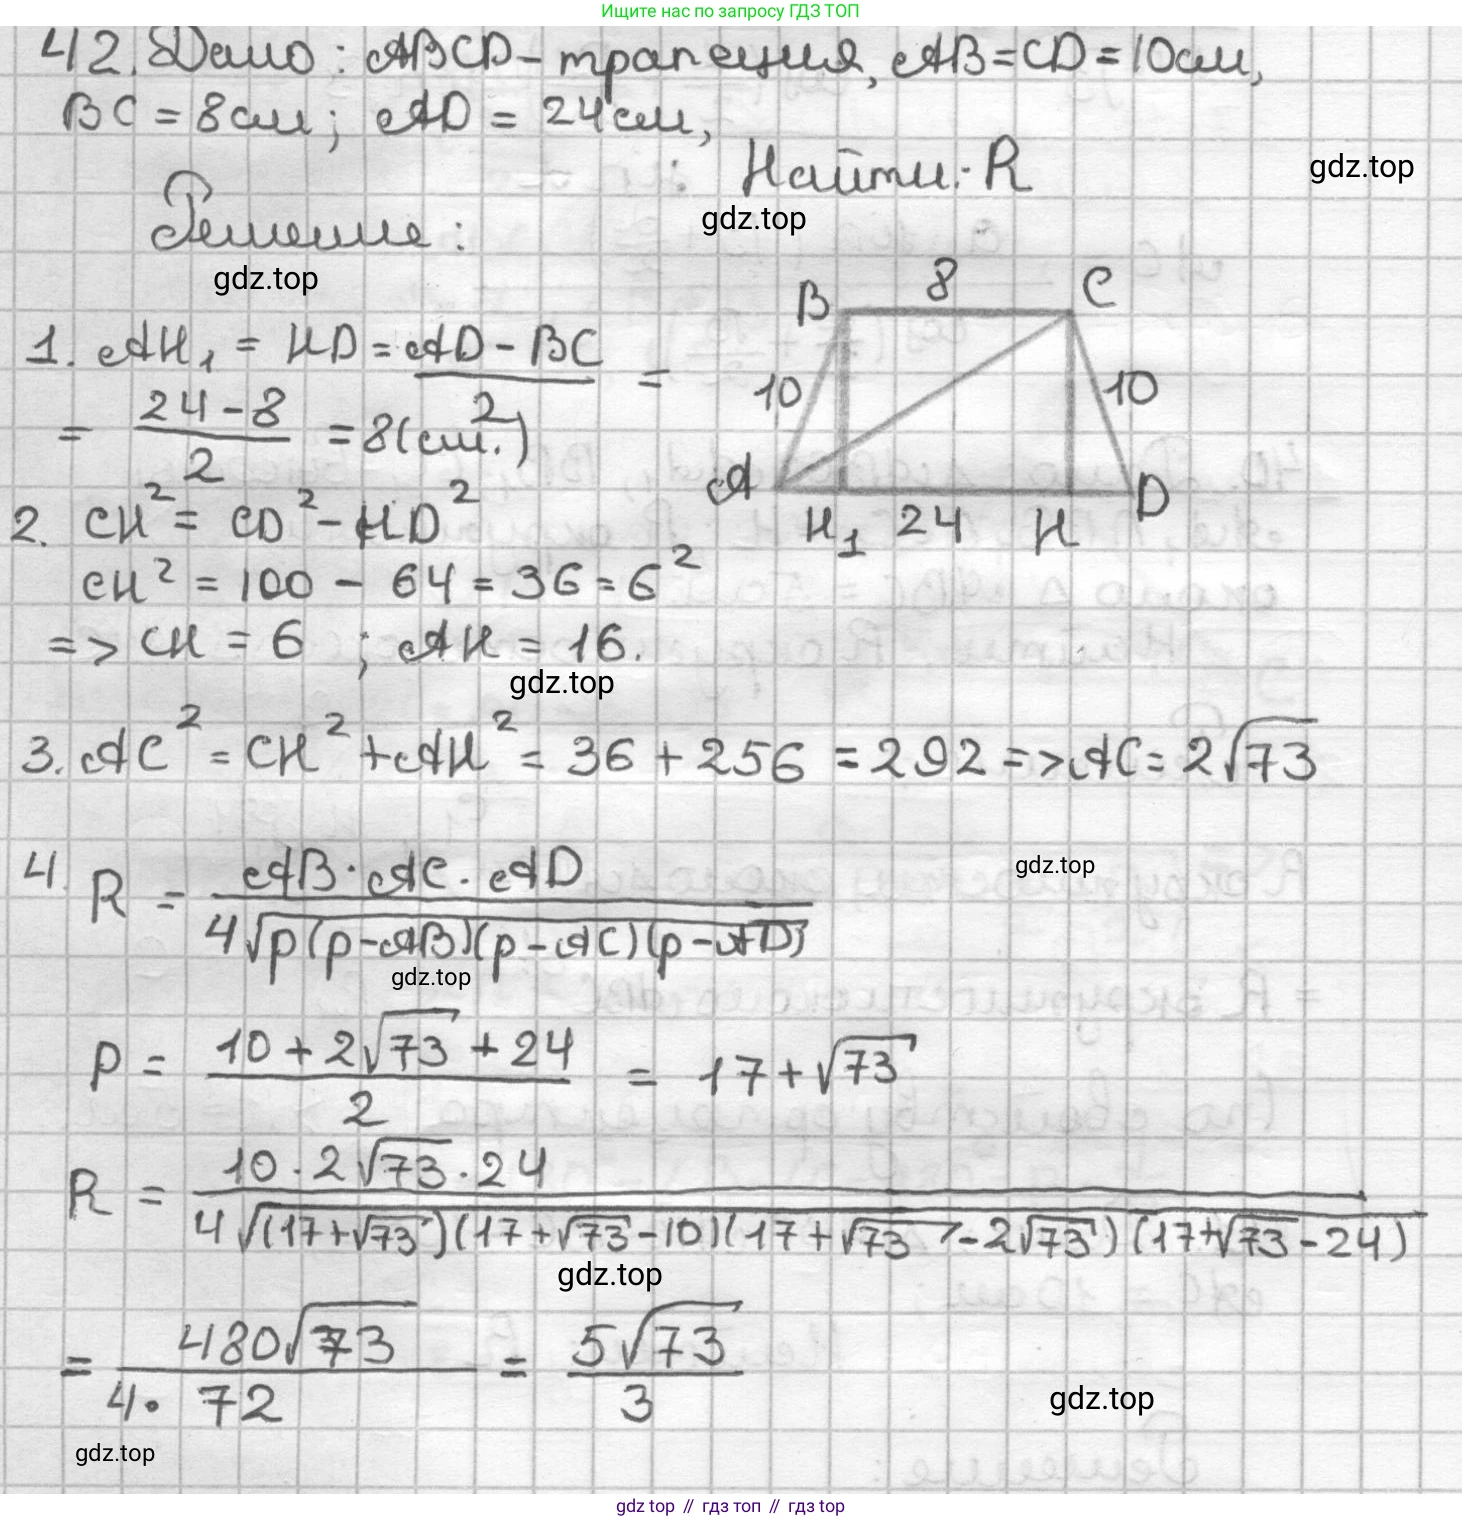 Ищите нас по запросу ГДЗ ТОП
42. Дано: ABCD – трапеция, AB = CD = 10см,
BC = 8см; AD = 24см,
Найти: R
gdz.top
gdz.top
Решение:
gdz.top
B 8 C
10 10
A H₁ 24 H D
1. AH₁ = HD = (AD - BC)/2 =
= (24 - 8)/2 = 8(см.)
2. CH² = CD² - HD²
CH² = 100 - 64 = 36 = 6²
=> CH = 6 ; AH = 16.
gdz.top
3. AC² = CH² + AH² = 36 + 256 = 292 => AC = 2√73
gdz.top
4. R = (AB · AC · AD)/(4√(p(p-AB)(p-AC)(p-AD)))
gdz.top
P = (10 + 2√73 + 24)/2 = 17 + √73
R = (10 · 2√73 · 24)/(4√((17+√73)(17+√73-10)(17+√73-2√73)(17+√73-24)))
gdz.top
= 480√73/(4 · 72) = 5√73/3
gdz.top
gdz.top
gdz top // гдз топ // гдз top